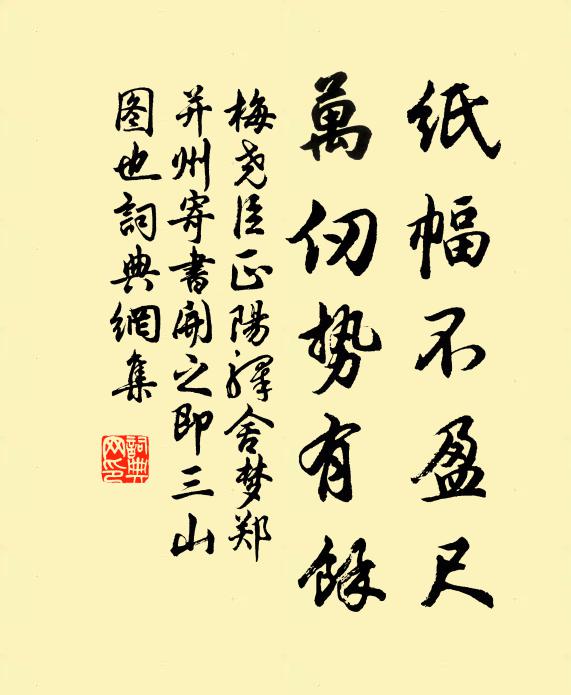 紙幅不盈尺
萬仞势有餘
梅尧臣正陽驛舍梦郑
并州寄書開之即三山
图也詞典網集
詞典网印